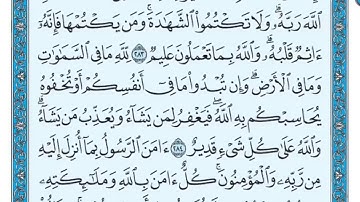 ٱللَّهَ رَبَّهُۥۗ وَلَا تَكۡتُمُواْ ٱلشَّهَٰدَةَۚ وَمَن يَكۡتُمۡهَا فَإِنَّهُۥٓ
ءَاثِمٞ قَلۡبُهُۥۗ وَٱللَّهُ بِمَا تَعۡمَلُونَ عَلِيمٞ ٢٨٣ لِّلَّهِ مَا فِي ٱلسَّمَٰوَٰتِ
وَمَا فِي ٱلۡأَرۡضِۗ وَإِن تُبۡدُواْ مَا فِيٓ أَنفُسِكُمۡ أَوۡ تُخۡفُوهُ
يُحَاسِبۡكُم بِهِ ٱللَّهُۖ فَيَغۡفِرُ لِمَن يَشَآءُ وَيُعَذِّبُ مَن يَشَآءُۗ
وَٱللَّهُ عَلَىٰ كُلِّ شَيۡءٖ قَدِيرٌ ٢٨٤ ءَامَنَ ٱلرَّسُولُ بِمَآ أُنزِلَ إِلَيۡهِ
مِن رَّبِّهِۦ وَٱلۡمُؤۡمِنُونَۚ كُلٌّ ءَامَنَ بِٱللَّهِ وَمَلَٰٓئِكَتِهِۦ